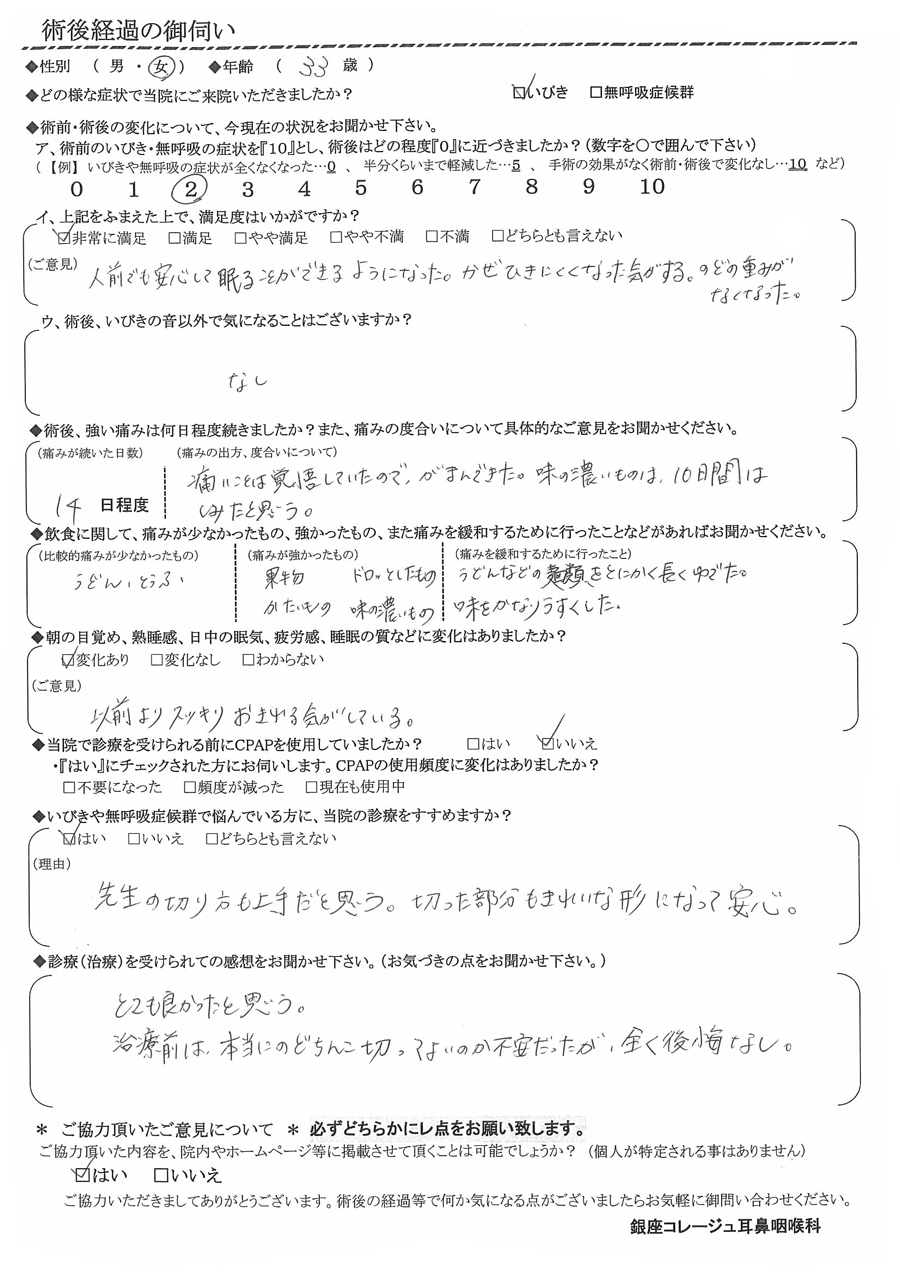 術後経過の御伺い
◆性別 ( 男 ・ 女 ) ◆年齢 ( 33 歳 )
◆どの様な症状で当院にご来院いただきましたか? ☑いびき □無呼吸症候群
◆術前・術後の変化について、今現在の状況をお聞かせ下さい。
ア、術前のいびき・無呼吸の症状を『10』とし、術後はどの程度『0』に近づきましたか?(数字を○で囲んで下さい)
(【例】いびきや無呼吸の症状が全くなくなった…0 、 半分くらいまで軽減した…5 、 手術の効果がなく術前・術後で変化なし…10 など)
0 1 2 3 4 5 6 7 8 9 10
イ、上記をふまえた上で、満足度はいかがですか?
☑非常に満足 □満足 □やや満足 □やや不満 □不満 □どちらとも言えない
(ご意見) 人前でも安心して眠ることができるようになった。かぜひきにくくなった気がする。のどの重みが
なくなった。
ウ、術後、いびきの音以外で気になることはございますか?
なし
◆術後、強い痛みは何日程度続きましたか?また、痛みの度合いについて具体的なご意見をお聞かせください。
(痛みが続いた日数) (痛みの出方、度合いについて)
痛いことは覚悟していたので、がまんできた。味の濃いものは、10日間は
14 日程度 しみたと思う。
◆飲食に関して、痛みが少なかったもの、強かったもの、また痛みを緩和するために行ったことなどがあればお聞かせください。
(比較的痛みが少なかったもの) (痛みが強かったもの) (痛みを緩和するために行ったこと)
うどん、とうふ 果物 ドロッとしたもの うどんなどの麺類をとにかく長くゆでた。
かたいもの 味の濃いもの 味をかなりうすくした。
◆朝の目覚め、熟睡感、日中の眠気、疲労感、睡眠の質などに変化はありましたか?
☑変化あり □変化なし □わからない
(ご意見)
以前よりスッキリおきれる気がしている。
◆当院で診療を受けられる前にCPAPを使用していましたか? □はい ☑いいえ
・『はい』にチェックされた方にお伺いします。CPAPの使用頻度に変化はありましたか?
□不要になった □頻度が減った □現在も使用中
◆いびきや無呼吸症候群で悩んでいる方に、当院の診療をすすめますか?
☑はい □いいえ □どちらとも言えない
(理由)
先生の切り方も上手だと思う。切った部分もきれいな形になって安心。
◆診療(治療)を受けられての感想をお聞かせ下さい。(お気づきの点をお聞かせ下さい。)
とても良かったと思う。
治療前は、本当にのどちんこ切ってよいのか不安だったが、全く後悔なし。
＊ ご協力頂いたご意見について ＊ 必ずどちらかにレ点をお願い致します。
ご協力頂いた内容を、院内やホームページ等に掲載させて頂くことは可能でしょうか? (個人が特定される事はありません)
☑はい □いいえ
ご協力いただきましてありがとうございます。術後の経過等で何か気になる点がございましたらお気軽に御問い合わせください。
銀座コレージュ耳鼻咽喉科